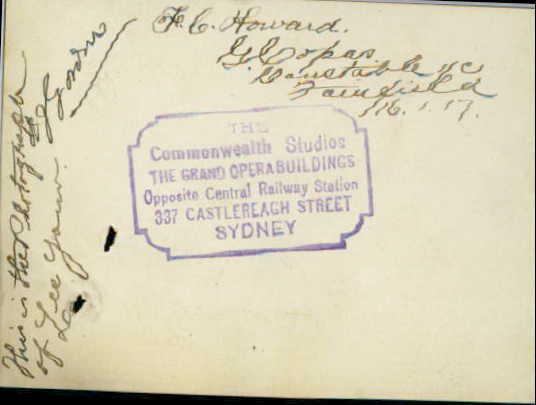 F. C. Howard.
Constable
Fairfield
16.1.17.
THE
Commonwealth Studios
THE GRAND OPERA BUILDINGS
Opposite Central Railway Station
337 CASTLEREAGH STREET
SYDNEY
This is the Photograph
of Lee